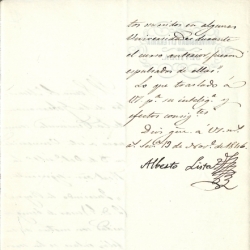 tos ocurridos en algunas
Universidades durante
el curso anterior fuesen
espulsados de ellas.
Lo que traslado á
V. pª su inteligª y
efectos consigtes
Dios gue á V. ms.
as. 19 de
Alberto Lista